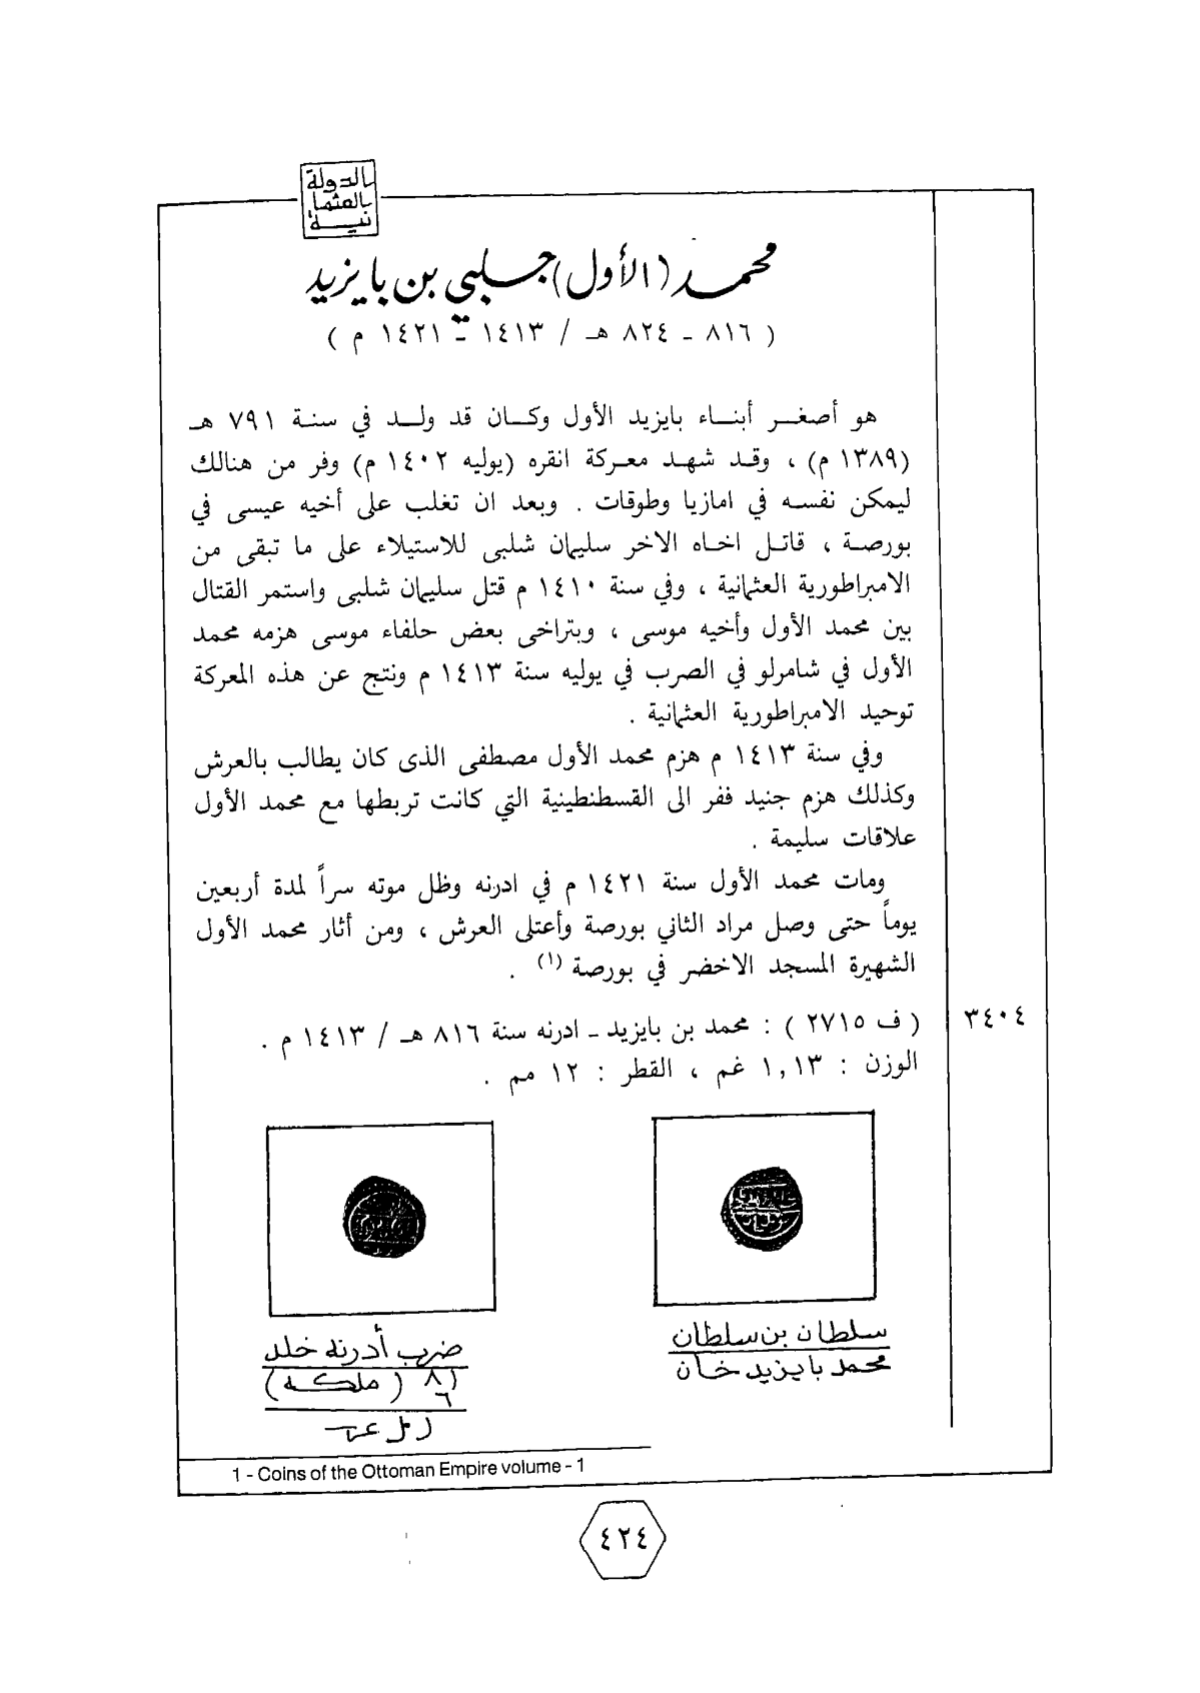 بالدولة
بالعثما
نية
محمد (الأول) جلبي بن بايزيد
( ٨١٦ - ٨٢٤ هـ / ١٤١٣ - ١٤٢١ م )
هو أصغر أبناء بايزيد الأول وكان قد ولد في سنة ٧٩١ هـ
(١٣٨٩ م) ، وقد شهد معركة انقره (يوليه ١٤٠٢ م) وفر من هنالك
ليمكن نفسه في امازيا وطوقات . وبعد ان تغلب على أخيه عيسى في
بورصة ، قاتل اخاه الاخر سليمان شلبى للاستيلاء على ما تبقى من
الامبراطورية العثمانية ، وفي سنة ١٤١٠ م قتل سليمان شلبى واستمر القتال
بين محمد الأول وأخيه موسى ، وبتراخى بعض حلفاء موسى هزمه محمد
الأول في شامرلو في الصرب في يوليه سنة ١٤١٣ م ونتج عن هذه المعركة
توحيد الامبراطورية العثمانية .
وفي سنة ١٤١٣ م هزم محمد الأول مصطفى الذى كان يطالب بالعرش
وكذلك هزم جنيد ففر الى القسطنطينية التي كانت تربطها مع محمد الأول
علاقات سليمة .
ومات محمد الأول سنة ١٤٢١ م في ادرنه وظل موته سراً لمدة أربعين
يوماً حتى وصل مراد الثاني بورصة وأعتلى العرش ، ومن أثار محمد الأول
الشهيرة المسجد الاخضر في بورصة (١) .
٣٤٠٤
( ف ٢٧١٥ ) : محمد بن بايزيد - ادرنه سنة ٨١٦ هـ / ١٤١٣ م .
الوزن : ١,١٣ غم ، القطر : ١٢ مم .
سلطان بن سلطان
محمد بايزيد خان
ضرب أدرنة خلد
٨١ (ملكه)
٦
1 - Coins of the Ottoman Empire volume - 1
٤٢٤